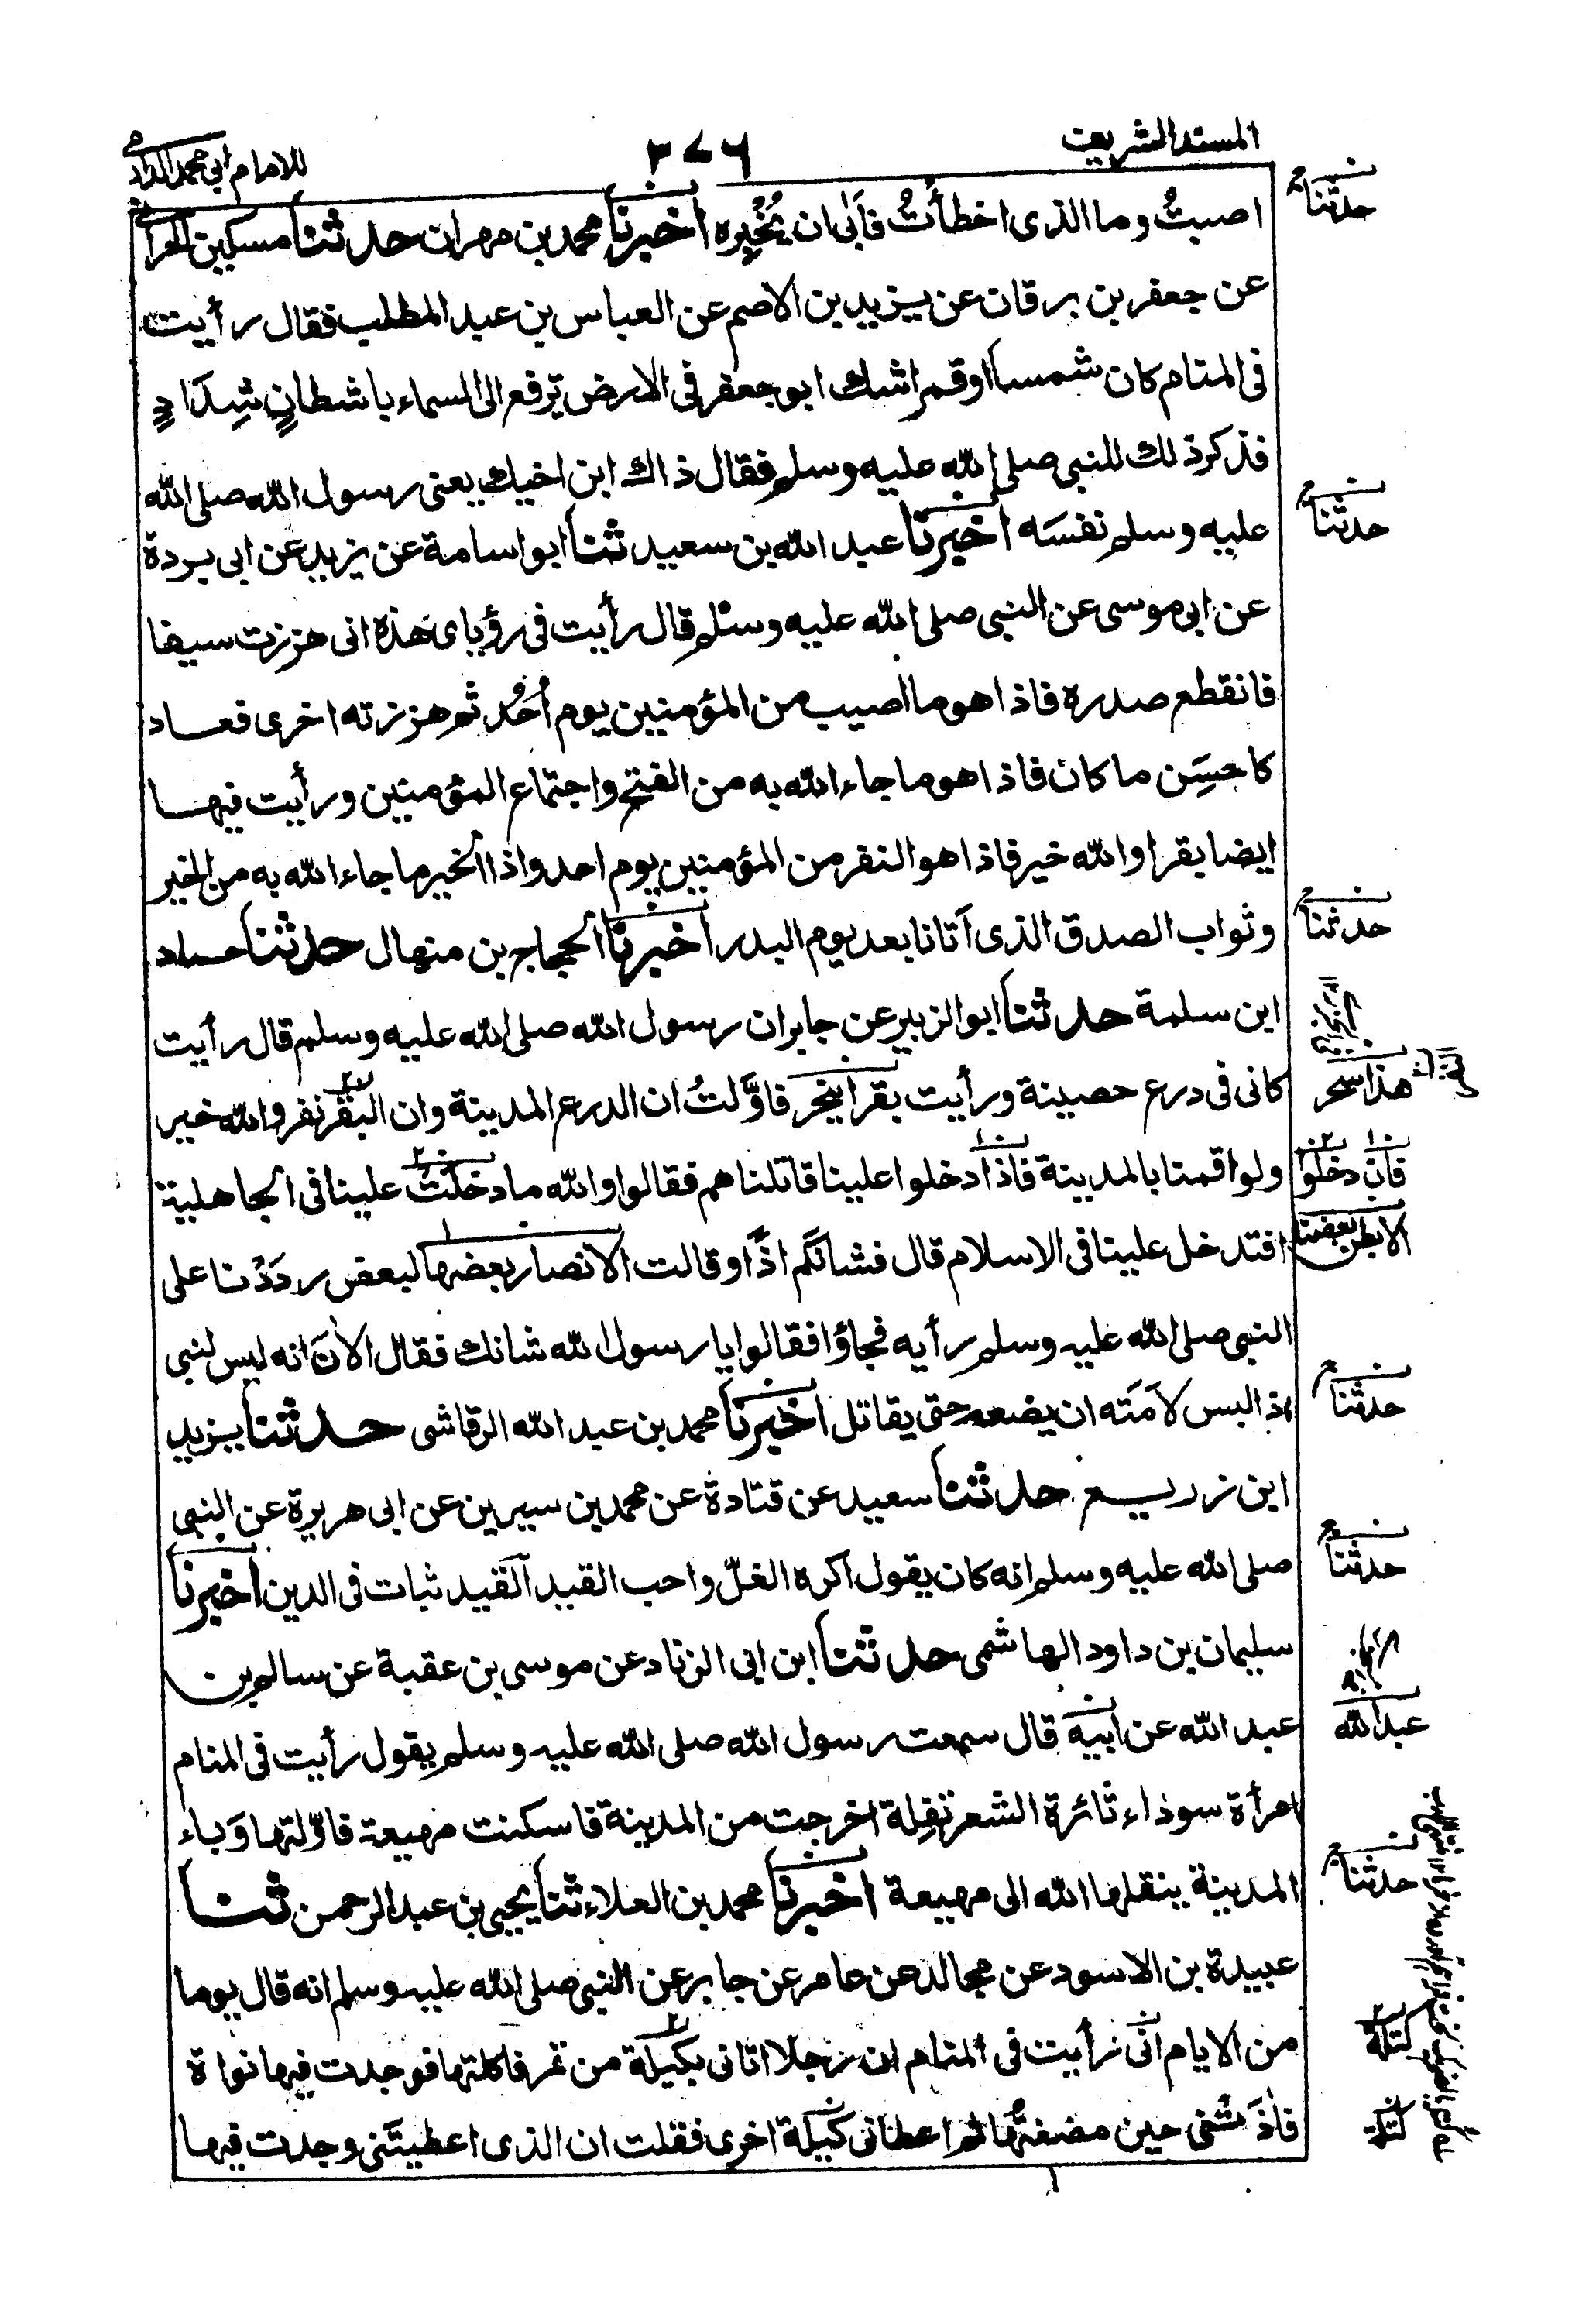 المسند الشريف
٢٧٦
للامام ابی محمد الدارمی
اصبتُ وما الذی اخطأتُ فأبٰی ان یُخْبِره اخبرنا محمد بن مهران حدثنا مسکین الحرانی
عن جعفر بن برقان عن یزید بن الاصم عن العباس بن عبد المطلب فقال رأیت
فی المنام کان شمسا اوقمرا شك ابو جعفر فی الارض ترفع الی السماء باشطانٍ شِدَادٍ
فذکر ذلك للنبی صلی الله علیه وسلم فقال ذاك ابن اخیك یعنی رسول الله صلی الله
علیه وسلم نفسَه اخبرنا عبد الله بن سعید ثنا ابو اسامة عن یزید عن ابی بردة
عن ابی موسی عن النبی صلی الله علیه وسلم قال رأیت فی رؤیای هٰذه انی هززت سیفا
فانقطع صدره فاذا هو ما اصیب من المؤمنین یوم اُحُد ثم هززته اخری فعاد
کاحسَن ما کان فاذا هو ما جاء الله به من الفتح واجتماع المؤمنین ورأیت فیها
ایضا بقرا والله خیر فاذا هو النفر من المؤمنین یوم احد واذا الخیر ما جاء الله به من الخیر
وثواب الصدق الذی آتانا بعد یوم البدر اخبرنا الحجاج بن منهال حدثنا حماد
ابن سلمة حدثنا ابو الزبیر عن جابر ان رسول الله صلی الله علیه وسلم قال رأیت
کانی فی درع حصینة ورأیت بقرا ینحر فاوَّلتُ ان الدرع المدینة وان البقر نفر والله خیر
ولو اقمنا بالمدینة فاذا دخلوا علینا قاتلناهم فقالوا والله ما دخلتْ علینا فی الجاهلیة
افتدخل علینا فی الاسلام قال فشانکم اذًا وقالت الانصار بعضها لبعض رددْنا علی
النبی صلی الله علیه وسلم رأیه فجاؤا فقالوا یا رسول الله شانك فقال الاٰنَ انه لیس لنبی
اذ البس لاَمَته ان یضعه حتی یقاتل اخبرنا محمد بن عبد الله الرقاشی حدثنا یزید
ابن زریع حدثنا سعید عن قتادة عن محمد بن سیرین عن ابی هریرة عن النبی
صلی الله علیه وسلم انه کان یقول اکره الغلّ واحب القید القید ثبات فی الدین اخبرنا
سلیمان بن داود الهاشمی حدثنا ابن ابی الزناد عن موسی بن عقبة عن سالم بن
عبد الله عن ابیه قال سمعت رسول الله صلی الله علیه وسلم یقول رأیت فی المنام
امرأة سوداء ثائرة الشعر تفِلة اخرجت من المدینة فاسکنت مهیعة فاوّلتها وَباء
المدینة ینقلها الله الی مهیعة اخبرنا محمد بن العلاء ثنا یحیی بن عبد الرحمن ثنا
عبیدة بن الاسود عن مجالد عن عامر عن جابر عن النبی صلی الله علیه وسلم انه قال یوما
من الایام انّی رأیت فی المنام ان رجلا اتانی بکیلة من تمر فاکلتها فوجدت فیها نواة
فاٰذتنی حین مضغتُها ثم اعطانی کیلة اخری فقلت ان الذی اعطیتَنی وجدت فیها
حدثنا
حدثنا
حدثنا
هذا سحر
فان دخلوا
بعضنا
حدثنا
حدثنا
عبد الله
حدثنا
کتلة
کتلة